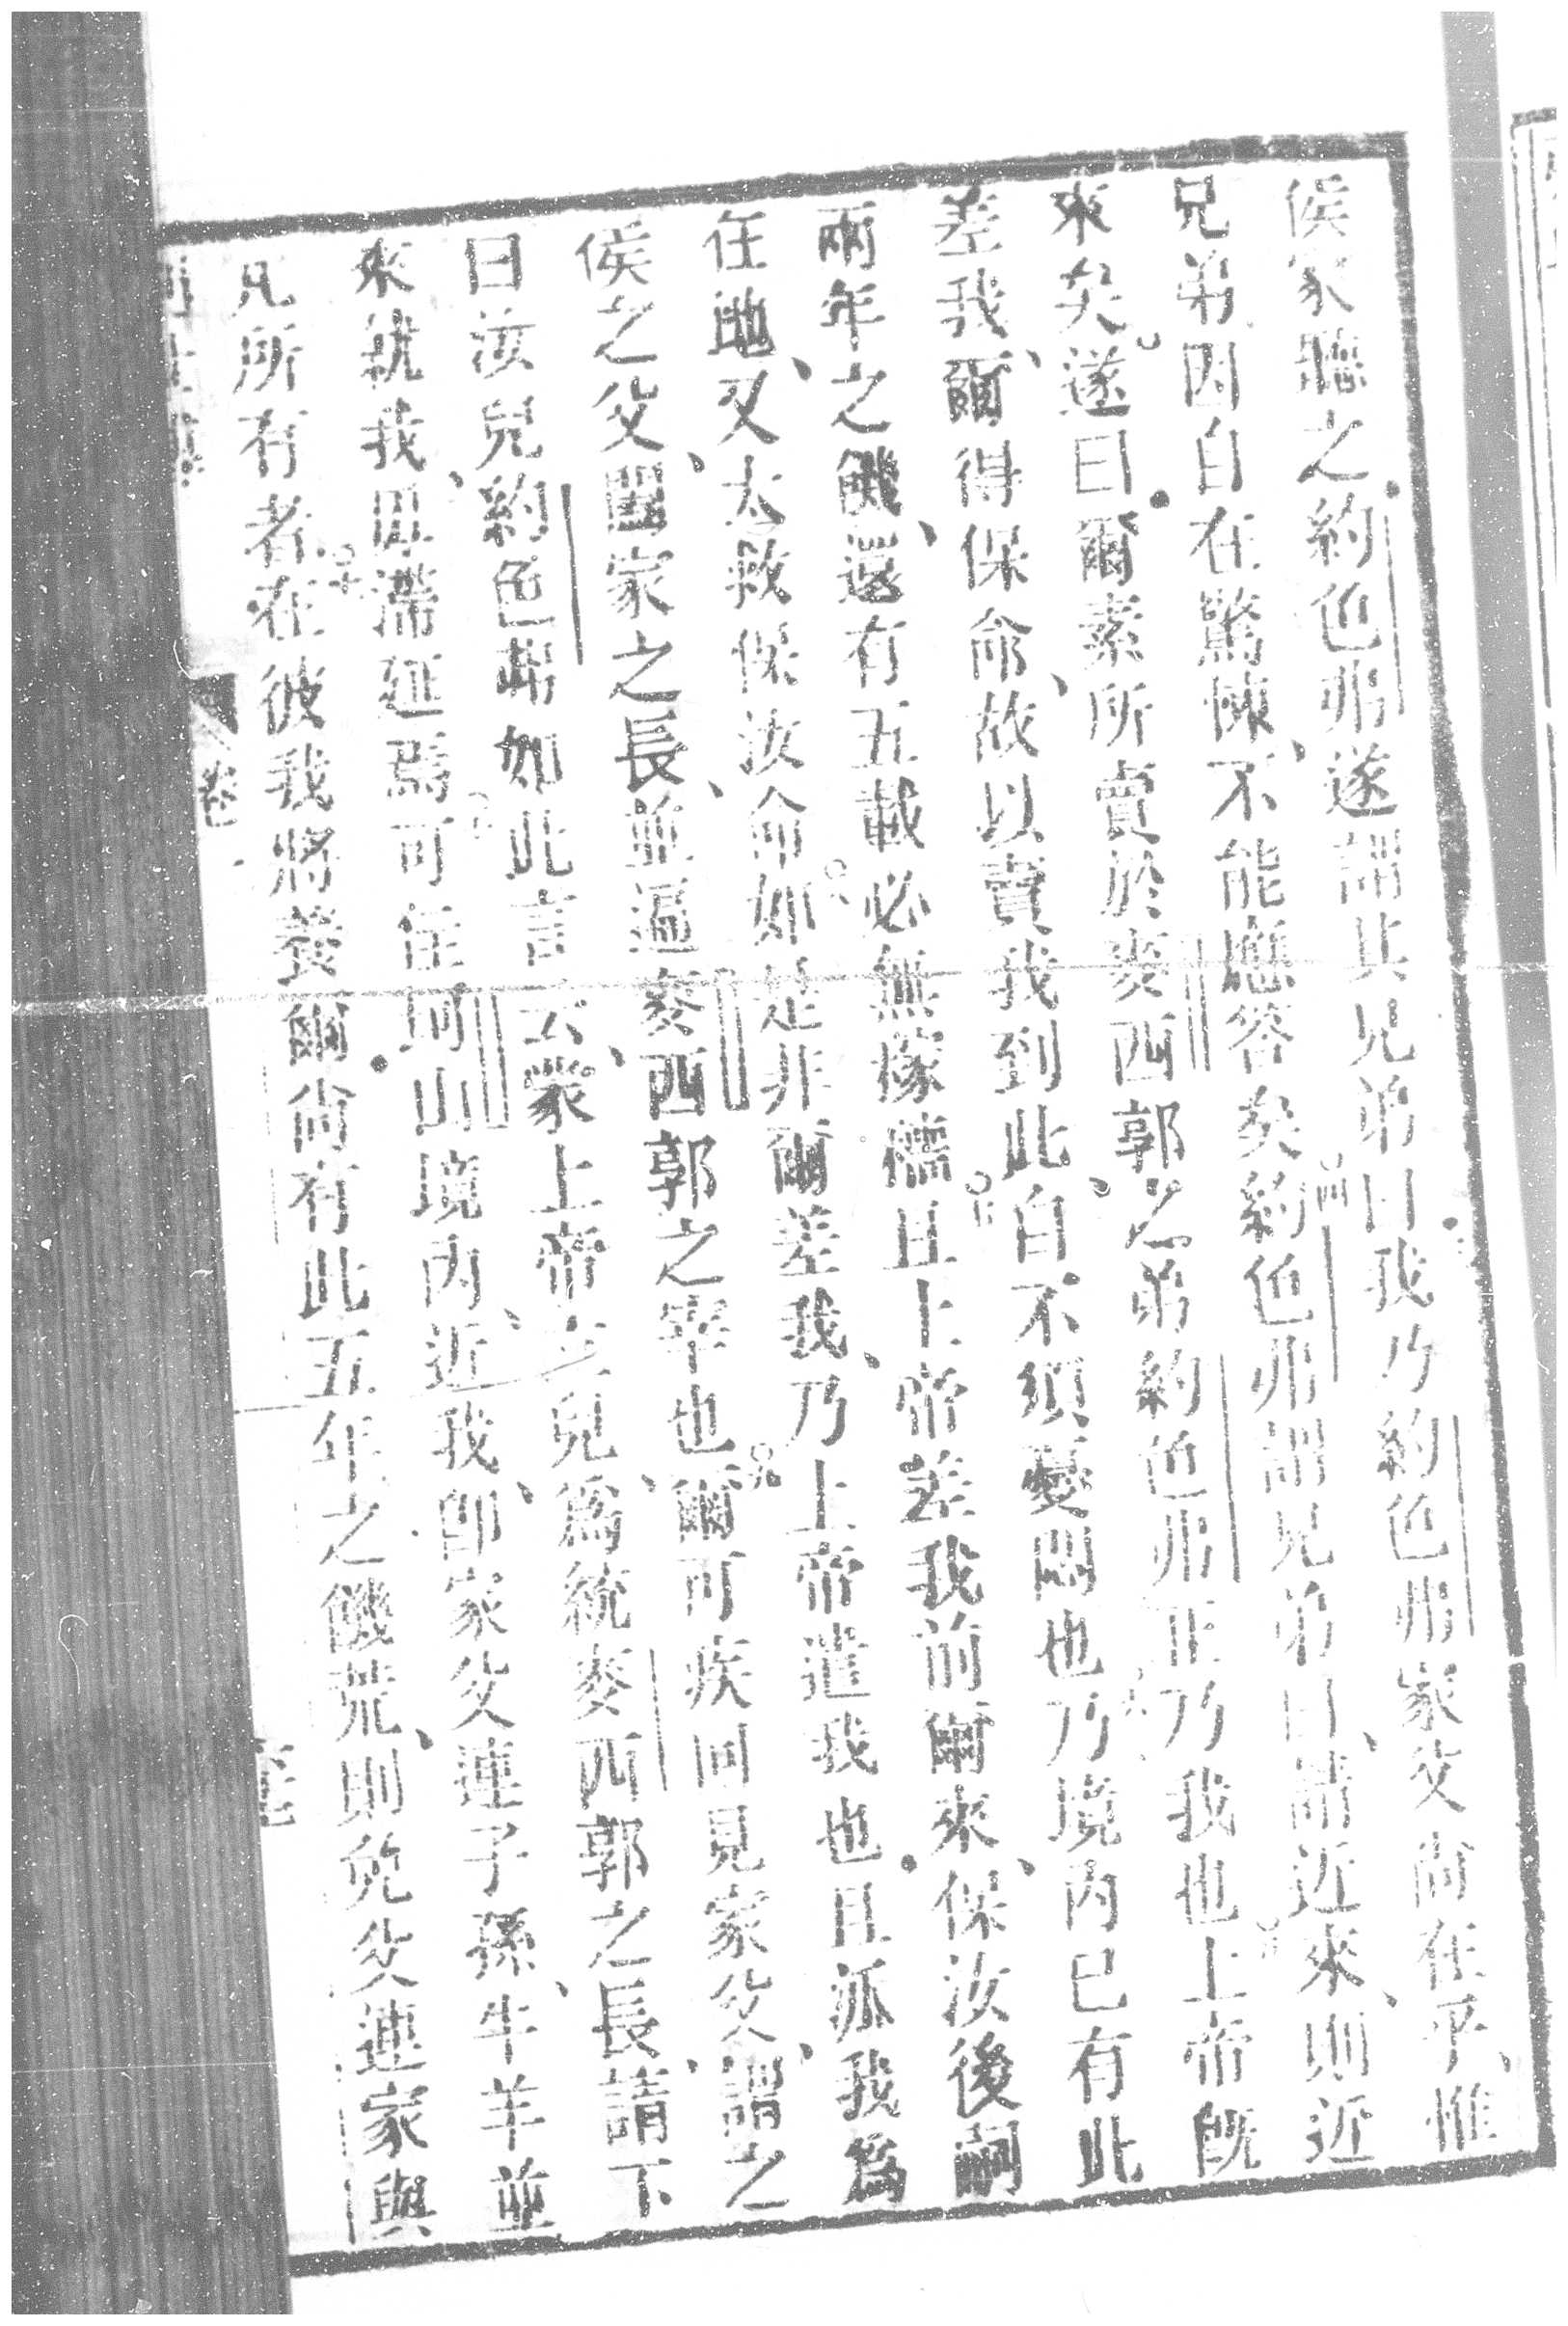 侯家聽之約色弗遂謂其兄弟曰我乃約色弗家父尚在乎惟
兄弟因自在驚悚不能應答矣約色弗謂兄弟曰請近來則近
來矣遂曰爾素所賣於麥西郭之弟約色弗正乃我也上帝既
差我爾得保命故以賣我到此自不須憂悶也乃境內已有此
兩年之饑還有五載必無稼穡且上帝差我前爾來保汝後嗣
在地又大救保汝命如是非爾差我乃上帝遣我也且派我爲
侯之父闔家之長並逼麥西郭之宰也爾可疾回見家父謂之
曰汝兒約色弗如此言云蒙上帝之兒爲統麥西郭之長請下
來就我毋滯延焉可住坷山境內近我卽家父連子孫牛羊並
凡所有者在彼我將養爾尚有此五年之饑荒則免父連家與